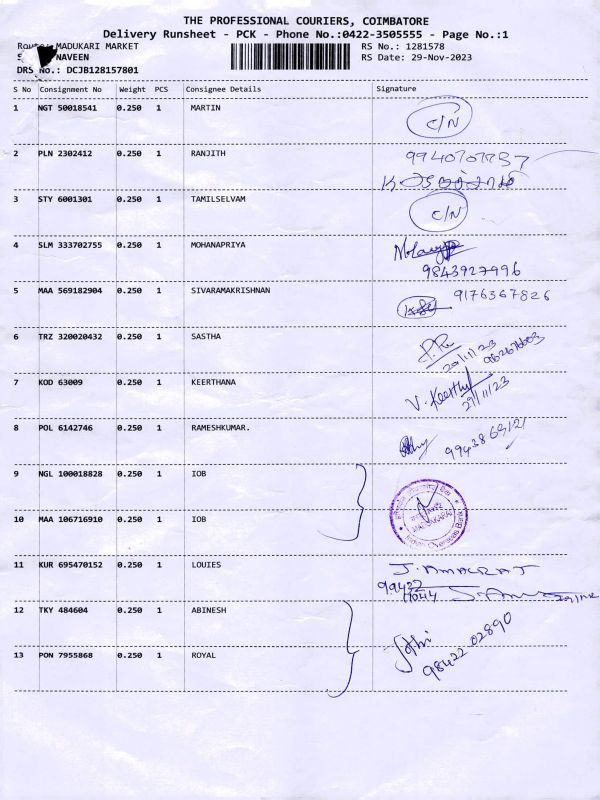 THE PROFESSIONAL COURIERS, COIMBATORE
Delivery Runsheet - PCK - Phone No.:0422-3505555 - Page No.:1
Route: MADUKARI MARKET RS No.: 1281578
NAVEEN RS Date: 29-Nov-2023
DRS No.: DCJB128157801
S No Consignment No Weight PCS Consignee Details Signature
1 NGT 50018541 0.250 1 MARTIN C/N
2 PLN 2302412 0.250 1 RANJITH
3 STY 6001301 0.250 1 TAMILSELVAM C/N
4 SLM 333702755 0.250 1 MOHANAPRIYA
9843927996
5 MAA 569182904 0.250 1 SIVARAMAKRISHNAN 9176367826
6 TRZ 320020432 0.250 1 SASTHA
29/11/23
7 KOD 63009 0.250 1 KEERTHANA V. Keerthy
29/11/23
8 POL 6142746 0.250 1 RAMESHKUMAR.
9 NGL 100018828 0.250 1 IOB
10 MAA 106716910 0.250 1 IOB Indian Overseas Bank
11 KUR 695470152 0.250 1 LOUIES J. AMALRAJ
99422
12 TKY 484604 0.250 1 ABINESH Jothi
98422 02890
13 PON 7955868 0.250 1 ROYAL